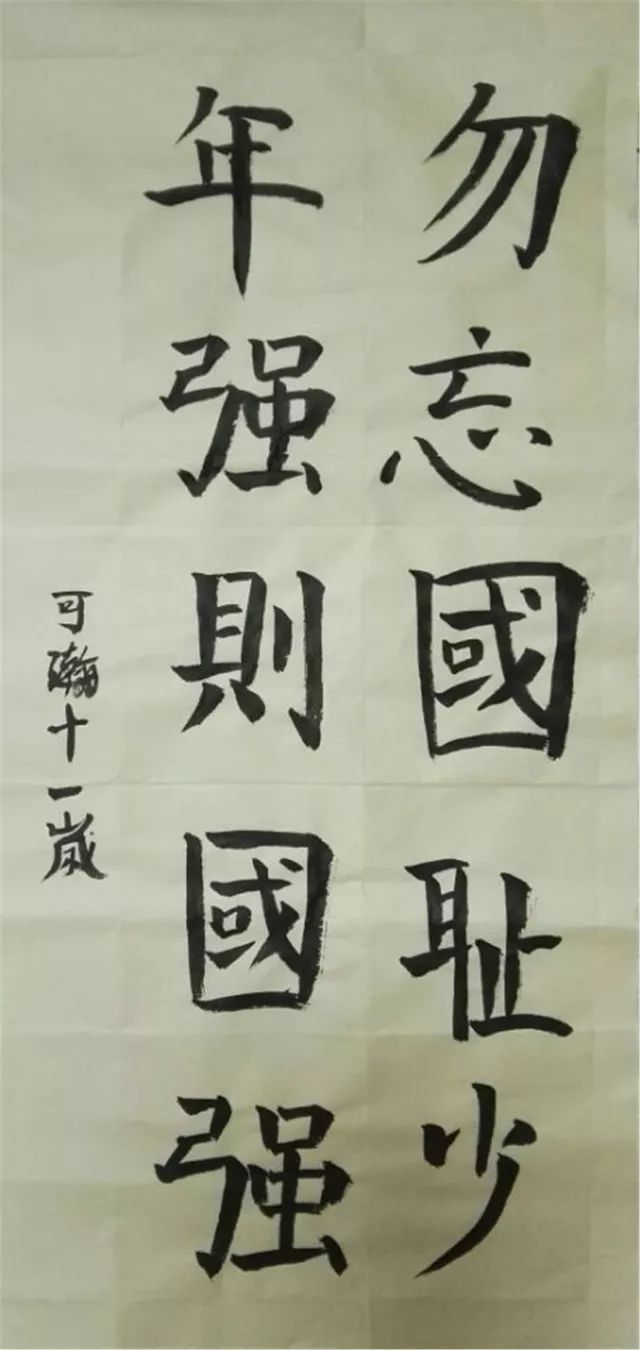 勿忘國耻少
年强則國强
可瀚十一歲